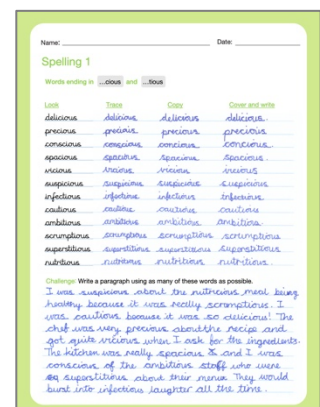 Name: Date:
Spelling 1
Words ending in ...cious and ...tious
Look Trace Copy Cover and write
delicious delicious delicious delicious.
precious precious precious precious
conscious conscious concious concious.
spacious spacious spacious spacious.
vicious vicious vicious vicious
suspicious suspicious suspicious suspicious
infectious infectious infectious infectious.
cautious cautious cautious cautiou
ambitious ambitious ambitious ambitious.
scrumptious scrumptious scrumptious scrumptious
superstitious superstitious superstitious superstitious.
nutritious nutritious nutritious nutritious
Challenge Write a paragraph using as many of these words as possible.
I was suspicious about the nutricious meal being
healthy because it was really scrumptious. I
was cautious because it was so delicious! The
chef was very precious about the recipe and
got quite vicious when I ask for the ingredients.
The kitchen was really spacious & and I was
conscious of the ambitious staff who were
superstitious about their menu. They would
burst into infectious laughter all the time.